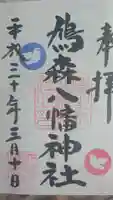 奉拝
鳩森八幡神社
平成二十七年三月十日